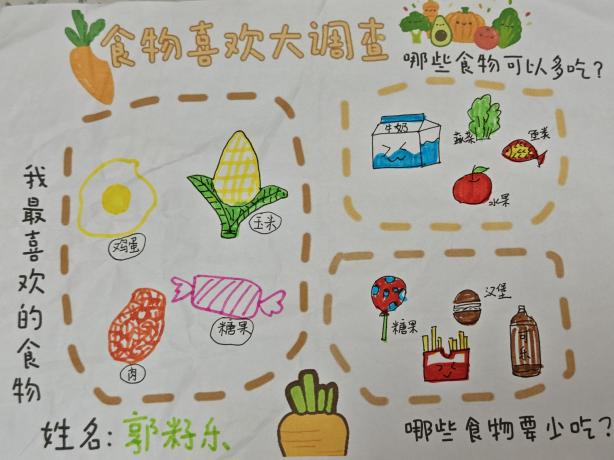 食物喜欢大调查
哪些食物可以多吃?
牛奶
蔬菜
鱼类
水果
我最喜欢的食物
鸡蛋
玉米
糖果
肉
糖果
汉堡
可乐
姓名:郭籽乐
哪些食物要少吃?